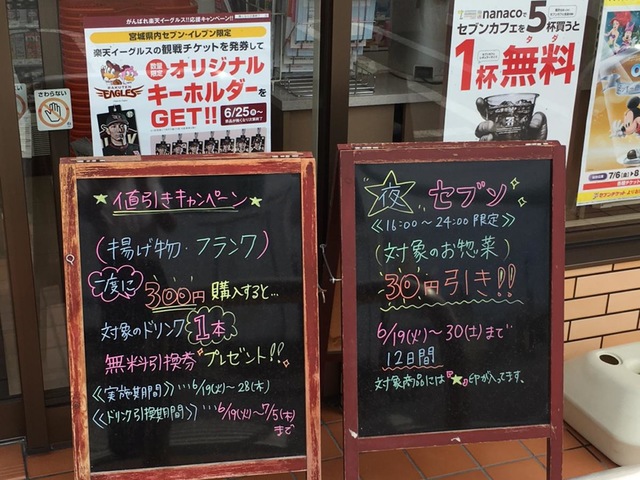 がんばれ楽天イーグルス!!応援キャンペーン!!
宮城県内セブン-イレブン限定
楽天イーグルスの観戦チケットを発券して
数量限定
オリジナル
キーホルダーを
GET!!
6/25㊊〜
EAGLES
さわらない
nanacoで
セブンカフェを5杯買うと
1杯無料
タダ
7/6(金)
★値引きキャンペーン★
(揚げ物・フランク)
一度に300円購入すると…
対象のドリンク1本
無料引換券プレゼント!!
《実施期間》…6/19(火)〜28(木)
《ドリンク引換期間》…6/19(火)〜7/5(木)
まで
夜セブン
《16:00〜24:00限定》
(対象のお惣菜)
30円引き!!
6/19(火)〜30(土)まで
12日間
対象商品には★印が入ってます。